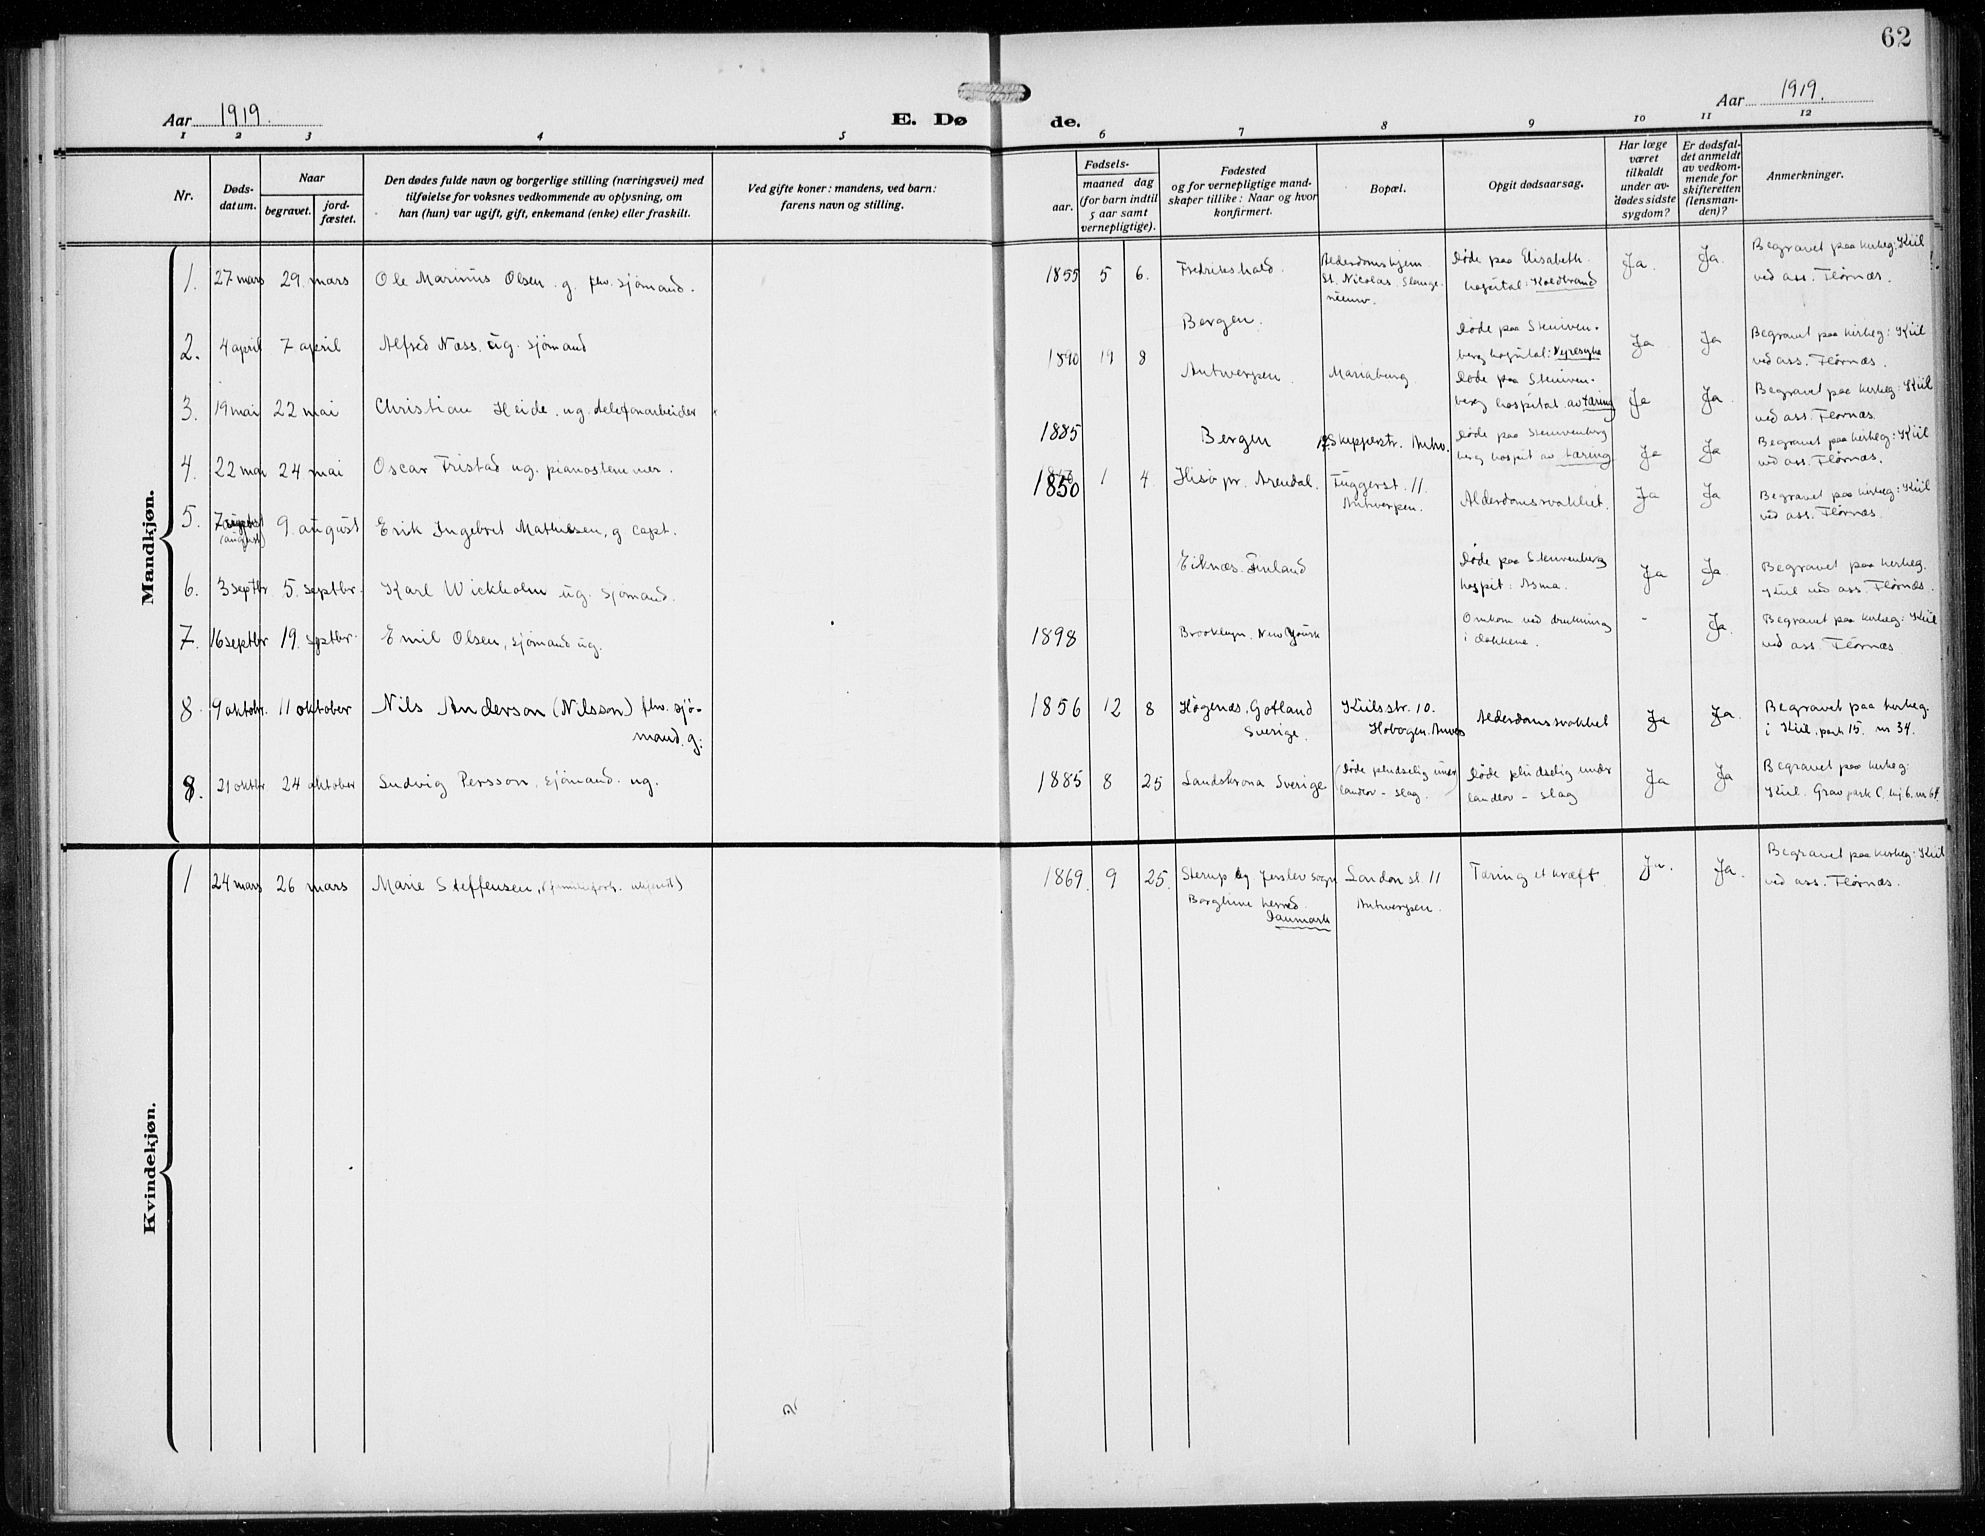 62
Aar 1919. E. Dø de. Aar 1919.
1 2 3 4 5 6 7 8 9 10 11 12
Nr.
Døds-
datum.
Naar
begravet.
jord-
fæstet.
Den dødes fulde navn og borgerlige stilling (næringsvei) med
tilføielse for voksnes vedkommende av oplysning, om
han (hun) var ugift, gift, enkemand (enke) eller fraskilt.
Ved gifte koner: mandens, ved barn:
farens navn og stilling.
Fødsels-
aar.
maaned dag
(for barn indtil
5 aar samt
vernepligtige).
Fødested
og for vernepligtige mand-
skaper tillike: Naar og hvor
konfirmert.
Bopæl.
Opgit dødsaarsag.
Har læge
været
tilkaldt
under av-
dødes sidste
sygdom?
Er dødsfal-
det anmeldt
av vedkom-
mende for
skifteretten
(lensman-
den)?
Anmerkninger.
Mandkjøn.
1. 27 mars 29. mars Ole Marinius Olsen. g. fhv. sjømand. 1855 5 6. Fredrikshald. Alderdomshjem. Døde paa Elisabeth. Ja. Ja. Begravet paa kirkeg: Kiil
St. Nicolas. hospital: Koldbrand ved ass. Flørnæs.
2. 4 april 7 april Alfred Næss. ug. sjømand 1890 19 8 Bergen. Døde paa Stuiven- Ja Ja Begravet paa kirkeg: Kiil
berg hospital: Nyresyke ved ass. Flørnæs.
3. 19 mai 22 mai Christian Heide. ug. telefonarbeider Antwerpen. Mariaburg. Døde paa Stuiven- Ja Ja. Begravet paa kirkeg: Kiil
berg hospital av tæring ved ass. Flørnæs.
4. 22 mai 24 mai Oscar Fristad ug. pianostemmer. 1885 Bergen Skipperstr. Antw. Døde paa Stuivenberg Ja Ja Begravet paa kirkeg: Kiil
berg hospit av tæring ved ass. Flørnæs.
5. 7 (august) 9. august Erik Ingebret Mathiesen, g capt. 1850 1 4. Hisø pr. Arendal. Fuggerst. 11. Alderdomssvakhet. Ja Ja Begravet paa kirkeg: Kiil
Antwerpen. ved ass. Flørnæs.
6. 3 septbr 5. septbr. Karl Wickholm ug. sjømand. Eiknæs. Finland Døde paa Stuivenberg Ja Ja. Begravet paa kirkeg.
hospit: Asma. Kiil ved ass. Flørnæs.
7. 16 septbr 19. septbr. Emil Olsen, sjømand ug. 1898 Brooklyn. New Yourk Omkom ved drukning - Ja. Begravet paa kirkeg: Kiil
i dokkene. ved ass. Flørnæs
8. 9 oktobr. 11 oktober Nils Anderson (Nilsson) fhv. sjø- 1856 12 8 Høgenæs, Gotland Kiilsstr. 10. Alderdomssvakhet Ja Ja. Begravet paa kirkeg.
mand. g: Sverige. Hobogen. i Kiil. park 15. nr 34.
8. 21 oktbr 24 oktober Ludvig Persson, sjømand. ug. 1885 8 25 Landskrona Sverige (Døde pludselig under Døde pludselig under Ja Ja Begravet paa kirkeg.
landlov - slag.) landlov - slag Kiil. Grav park C. nr 64.
Kvindekjøn.
1 24 mars 26 mars Marie Steffensen, 1869. 9 25. Sterup by Jerslev sogn London st. 11 Tæring et kræft. Ja. Ja. Begravet paa kirkeg: Kiil
Børglum herred. Antwerpen. ved ass. Flørnæs.
Danmark